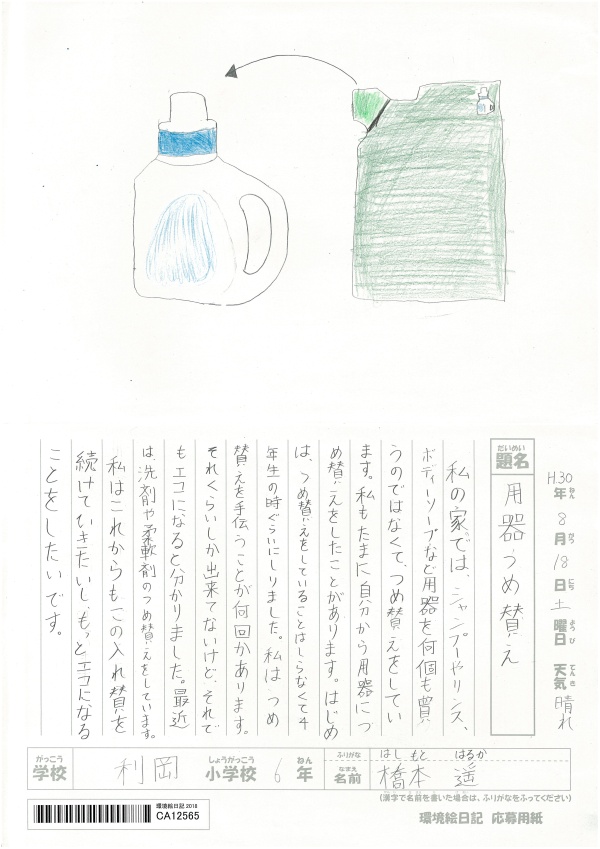 H.30年ねん 8月がつ 18日にち 土曜日ようび 天気てんき 晴れ
題名だいめい
用器うめ賛え
私の家では、シャンプーやリンス、
ボディーソープなど用器を何個も買
うのではなくて、つめ賛えをしてい
ます。私もたまに自分から用器につ
め賛えをしたことがあります。はじめ
は、つめ賛えをしていることはしらなくて4
年生の時ぐらいにしりました。私は、つめ
賛えを手伝うことが何回かあります。
それくらいしか出来てないけど、それで
もエコになると分かりました。最近
は、洗剤や柔軟剤のつめ賛えをしています。
私はこれからもこの入れ賛を
続けていきたいし、もっとエコになる
ことをしたいです。
学校がっこう 利岡 小学校しょうがっこう 6年ねん
ふりがな はしもと はるか
名前なまえ 橋本 遥
(漢字で名前を書いた場合は、ふりがなをふってください)
環境絵日記 2018
CA12565
環境絵日記 応募用紙